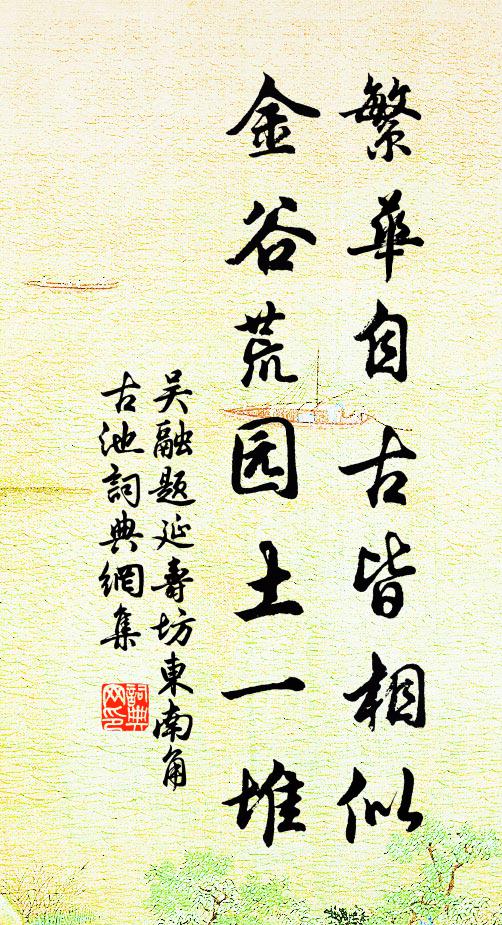 繁華自古皆相似
金谷荒园土一堆
吴融题延壽坊東南角
古池詞典網集
詞典
网印